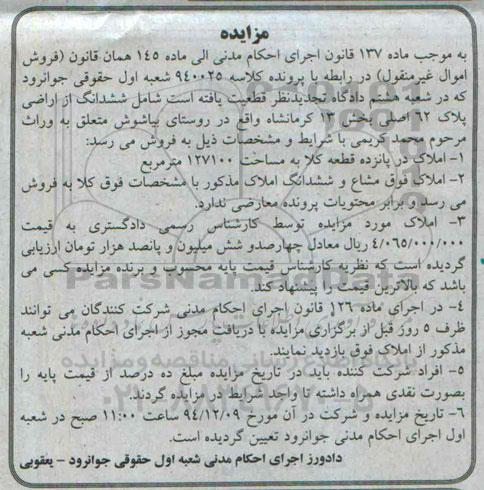 مزایده
به موجب ماده ۱۳۷ قانون اجرای احکام مدنی الی ماده ۱۴۵ همان قانون (فروش
اموال غیرمنقول) در رابطه با پرونده کلاسه ۹۴۰۰۲۵ شعبه اول حقوقی جوانرود
که در شعبه هشتم دادگاه تجدیدنظر قطعیت یافته است شامل ششدانگ از اراضی
پلاک ۶۲ اصلی بخش ۱۳ کرمانشاه واقع در روستای بیاشوش متعلق به وراث
مرحوم محمد کریمی با شرایط و مشخصات ذیل به فروش می رسد:
۱- املاک در پانزده قطعه کلا به مساحت ۱۲۷۱۰۰ مترمربع
۲- املاک فوق مشاع و ششدانگ املاک مذکور با مشخصات فوق کلا به فروش
می رسد و برابر محتویات پرونده معارضی ندارد.
۳- املاک مورد مزایده توسط کارشناس رسمی دادگستری به قیمت
۴/۰۶۵/۰۰۰/۰۰۰ ریال معادل چهارصدو شش میلیون و پانصد هزار تومان ارزیابی
گردیده است که نظریه کارشناس قیمت پایه محسوب و برنده مزایده کسی می
باشد که بالاترین قیمت را پیشنهاد کند.
۴- در اجرای ماده ۱۲۶ قانون اجرای احکام مدنی شرکت کنندگان می توانند
ظرف ۵ روز قبل از برگزاری مزایده با دریافت مجوز از اجرای احکام مدنی شعبه
مذکور از املاک فوق بازدید نمایند.
۵- افراد شرکت کننده باید در تاریخ مزایده مبلغ ده درصد از قیمت پایه را
بصورت نقدی همراه داشته تا واجد شرایط در مزایده گردند.
۶- تاریخ مزایده و شرکت در آن مورخ ۹۴/۱۲/۰۹ ساعت ۱۱:۰۰ صبح در شعبه
اول اجرای احکام مدنی جوانرود تعیین گردیده است.
دادورز اجرای احکام مدنی شعبه اول حقوقی جوانرود - یعقوبی